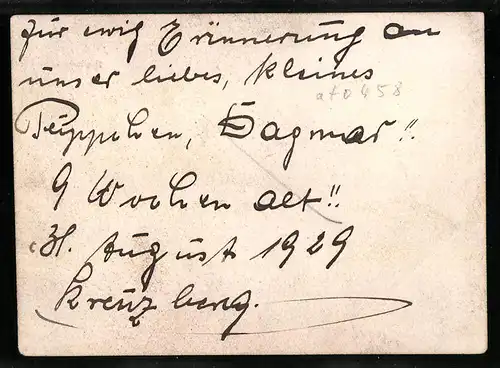 für ewig Erinnerung an
unser liebes, kleines
af0458
Püppchen, Dagmar!!
9 Wochen alt!!
31. August 1929
Kreuzberg.